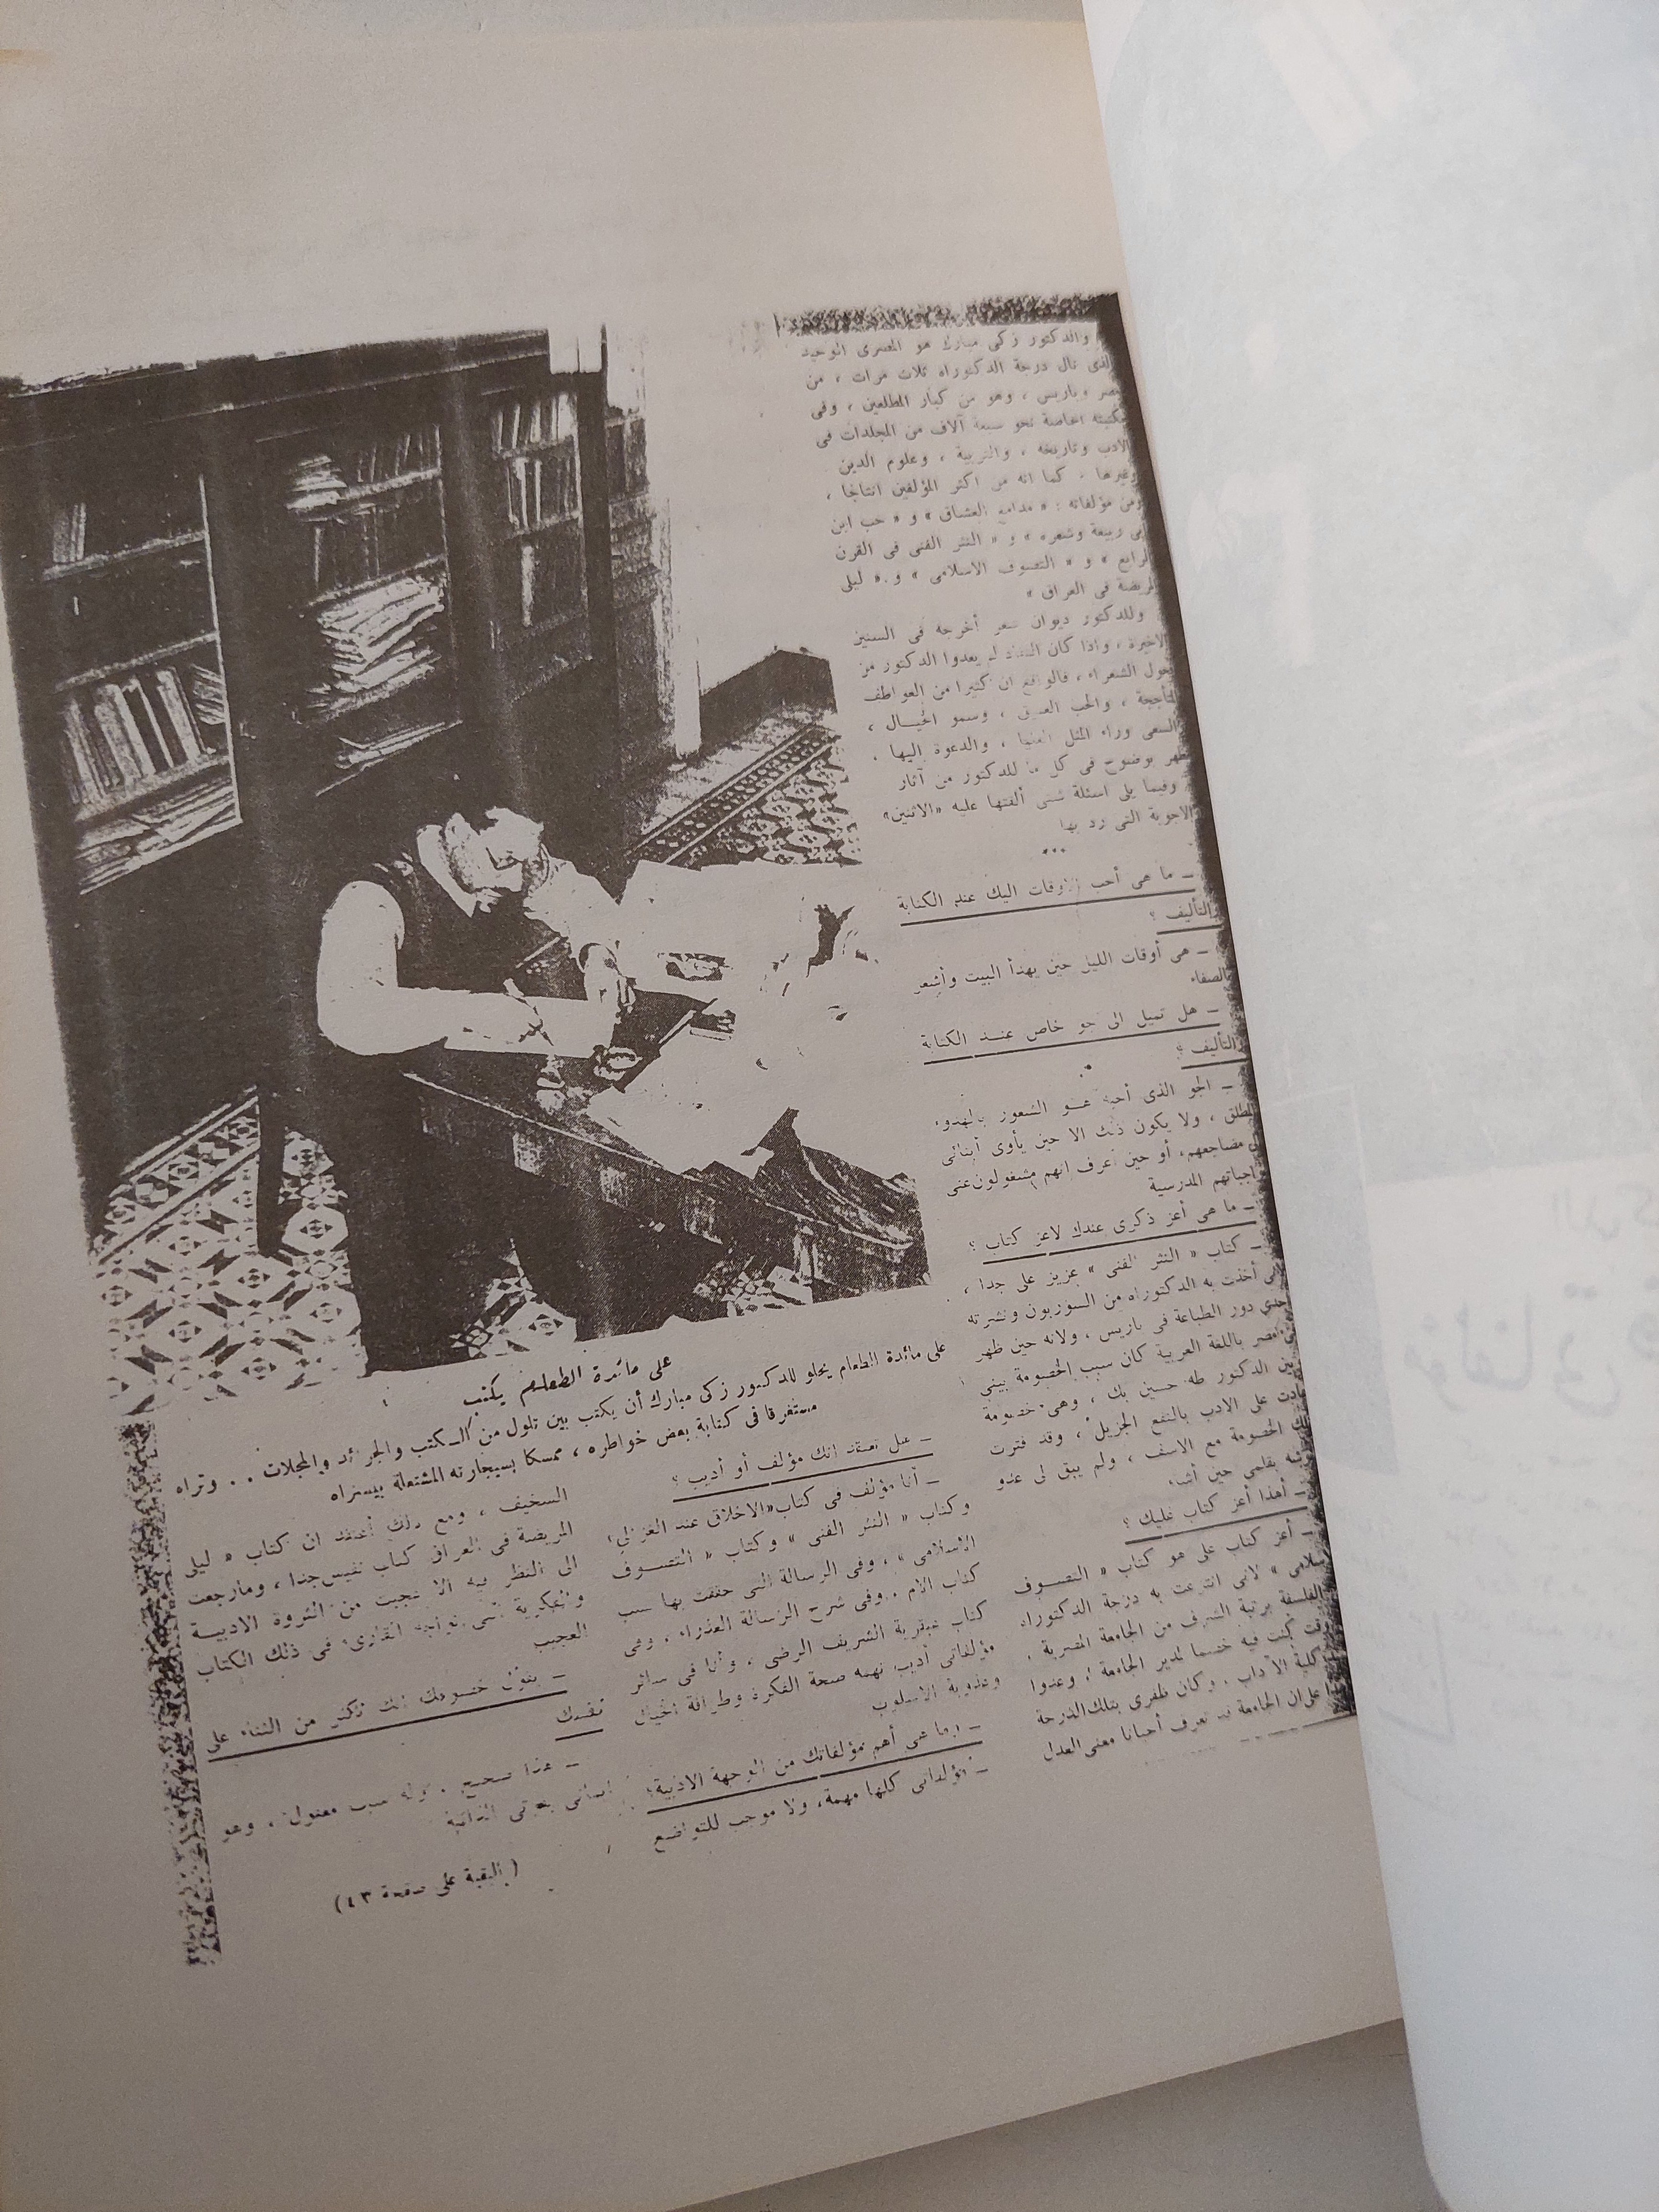 والدكتور زكى مبارك هو المصرى الوحيد
الذى نال درجة الدكتوراه ثلاث مرات ، من
مصر وباريس ، وهو من كبار المطلعين ، وفى
مكتبته الخاصة نحو سبعة آلاف من المجلدات فى
الادب وتاريخه ، والتربية ، وعلوم الدين
وغيرها . كما انه من اكثر المؤلفين انتاجا ،
ومن مؤلفاته : « مدامع العشاق » و « حب ابن
ابى ربيعة وشعره » و « النثر الفنى فى القرن
الرابع » و « التصوف الاسلامى » و « ليلى
المريضة فى العراق »
وللدكتور ديوان شعر أخرجه فى السنين
الاخيرة ، واذا كان النقاد لم يعدوا الدكتور من
فحول الشعراء ، فالواقع ان كثيرا من العواطف
المتأججة ، والحب العميق ، وسمو الخيـال ،
والسعى وراء المثل العليا ، والدعوة اليها .
تظهر بوضوح فى كل ما للدكتور من آثار
وفيما يلى اسئلة شتى ألقتها عليه «الاثنين»
والاجوبة التى رد بها
***
ـ ما هى أحب الاوقات اليك عند الكتابة
والتأليف ؟
ـ هى أوقات الليل حين يهدأ البيت وأشعر
بالصفاء
ـ هل تميل الى جو خاص عنـد الكتابة
والتأليف ؟
ـ الجو الذى أحبه هـو الشعور بالهدوء
المطلق ، ولا يكون ذلك الا حين يأوى أبنائى
الى مضاجعهم، أو حين أعرف انهم مشغولون عنى
بواجباتهم المدرسية
ـ ما هى أعز ذكرى عندك لاعز كتاب ؟
ـ كتاب « النثر الفنى » عزيز على جدا ،
أخذت به الدكتوراه من السوربون ونشرته
احدى دور الطباعة فى باريس ، ولانه حين ظهر
بمصر باللغة العربية كان سبب الخصومة بينى
وبين الدكتور طه حسين بك ، وهى خصومة
عادت على الادب بالنفع الجزيل ، وقد فترت
تلك الخصومة مع الاسف ، ولم يبق لى عدو
بقلمى حين أشاء
ـ أهذا أعز كتاب عليك ؟
ـ أعز كتاب على هو كتاب « التصـوف
الاسلامى » لانى انتزعت به درجة الدكتوراه
فى الفلسفة برتبة الشرف من الجامعة المصرية ،
فى وقت كنت فيه خصما لمدير الجامعة ، وعدوا
كلية الآداب ، وكان ظفرى بتلك الدرجة
على ان الجامعة قد تعرف أحيانا معنى العدل
على مائدة الطعام يكتب
على مائدة الطعام يحلو للدكتور زكى مبارك أن يكتب بين تلول من الكتب والجرائد والمجلات . . وتراه
مستغرقا فى كتابة بعض خواطره ، ممسكا بسيجارته المشتعلة بيسراه
ـ هل تعتقد انك مؤلف أو أديب ؟
ـ أنا مؤلف فى كتاب «الاخلاق عند الغزالى»
وكتاب « النثر الفنى » وكتاب « التصـوف
الاسلامى » ، وفى الرسالة التى حققت بها نسب
كتاب الام . وفى شرح الرسالة العذراء ، وفى
كتاب عبقرية الشريف الرضى ، وأنا فى سائر
مؤلفاتى أديب تهمه صحة الفكرة وطرافة الخيال
وعذوبة الاسلوب
ـ وما هى أهم مؤلفاتك من الوجهة الادبية؟
ـ مؤلفاتى كلها مهمة، ولا موجب للتواضع
السخيف ، ومع ذلك أعتقد ان كتاب « ليلى
المريضة فى العراق كتاب نفيس جدا ، ومارجعت
الى النظر فيه الا تعجبت من الثروة الادبيـة
والفكرية التى تواجه القارىء فى ذلك الكتاب
العجيب
ـ يقول خصومك انك تكثر من الثناء على
نفسك
ـ هذا صحيح . وله سبب معقول ، وهو
ايمانى بقوتى الذاتية
( البقية على صفحة ٤٣ )